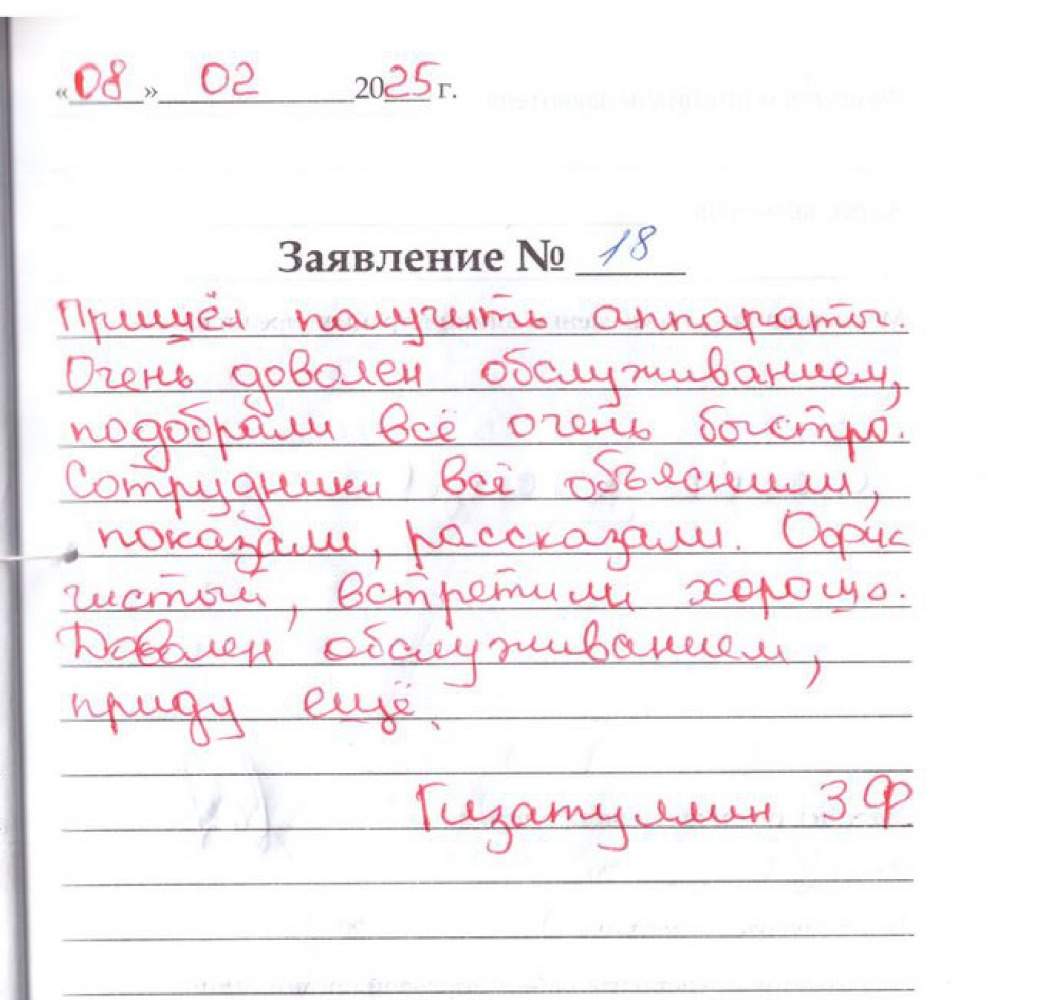 «08» 02 2025 г.
Заявление № 18
Пришёл получать аппараты.
Очень доволен обслуживанием,
подобрали всё очень быстро.
Сотрудники всё объяснили,
показали, рассказали. Офис
чистый, встретили хорошо.
Доволен обслуживанием,
приду ещё.
Гизатуллин З Ф